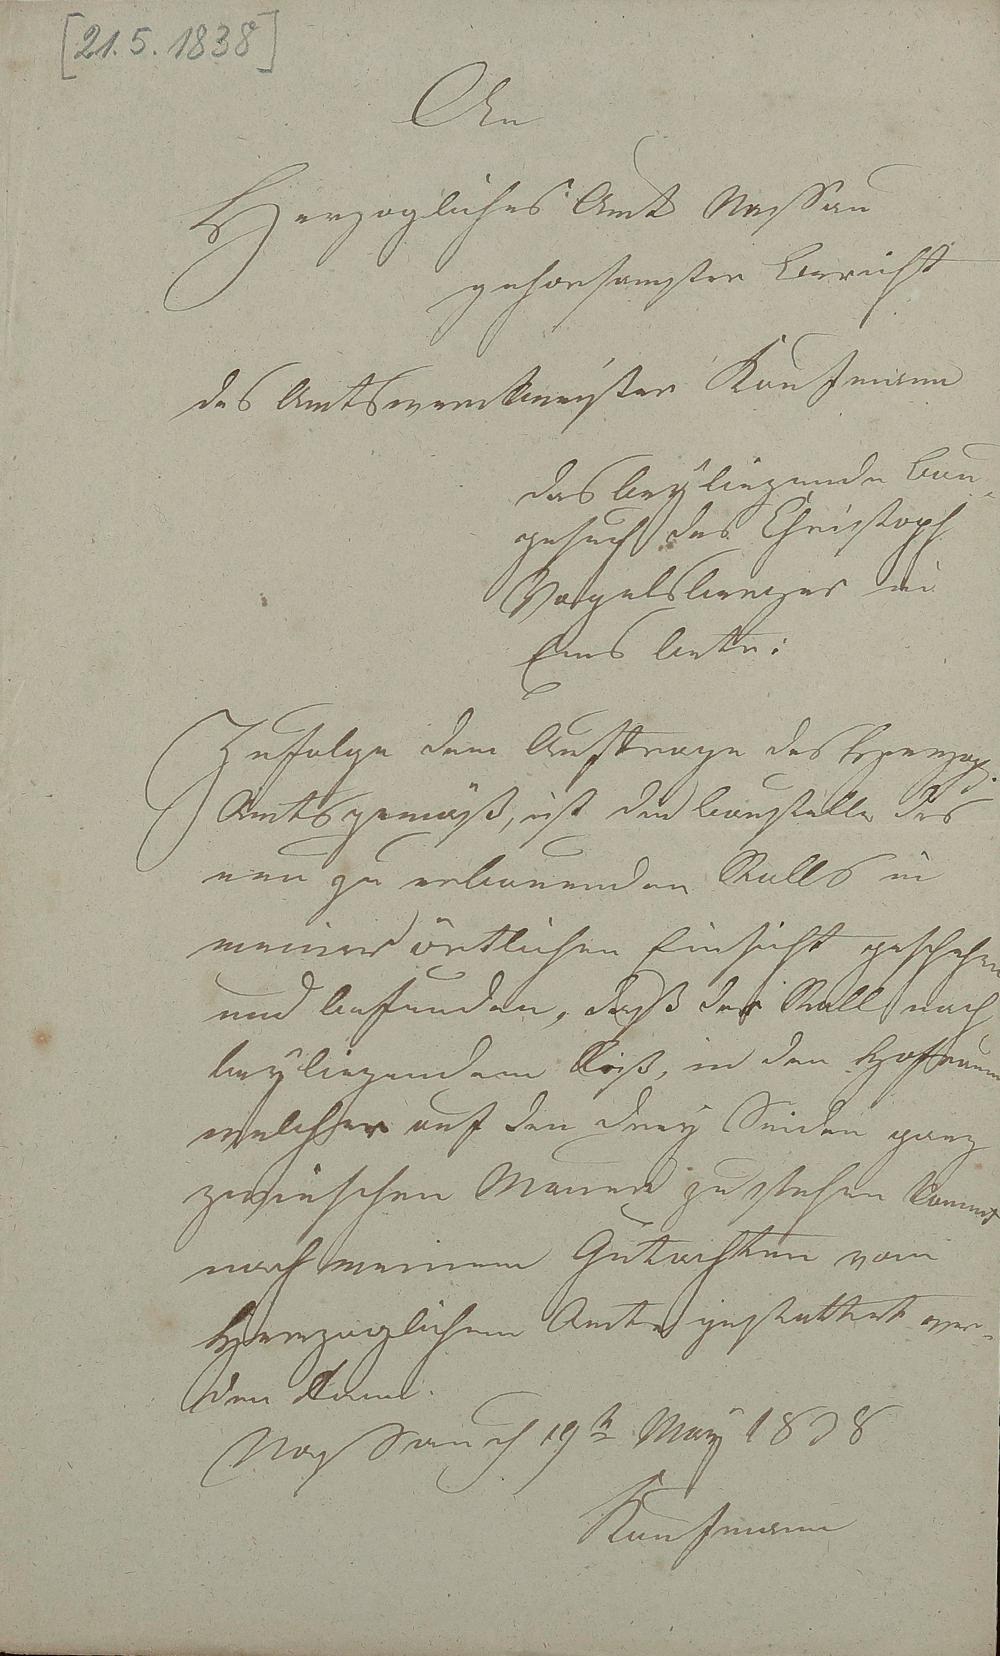 [21.5.1838]
An
Herzogliches Amt Nassau
gehorsamster Bericht
des Amtswerkmeister Kaufmann
das beÿliegende Bau-
gesuch des Christoph
Vogelsberger in
Ems betr:
Zufolge dem Auftrage des Herzogl.
Amts gemäß, ist die Baustelle des
neu zu erbauenden Stalls in
meiner örtlichen Einsicht geschehen
und befunden, daß der Stall nach
beÿliegendem Riß, in den Hofraum
welcher auf den dreÿ Seiden ganz
zwieschen Mauern zu stehen kommt
nach meinem Gutachten vom
Herzoglichem Amte gestattet wer-
den kann.
Nassau d 19ten Maÿ 1838
Kaufmann